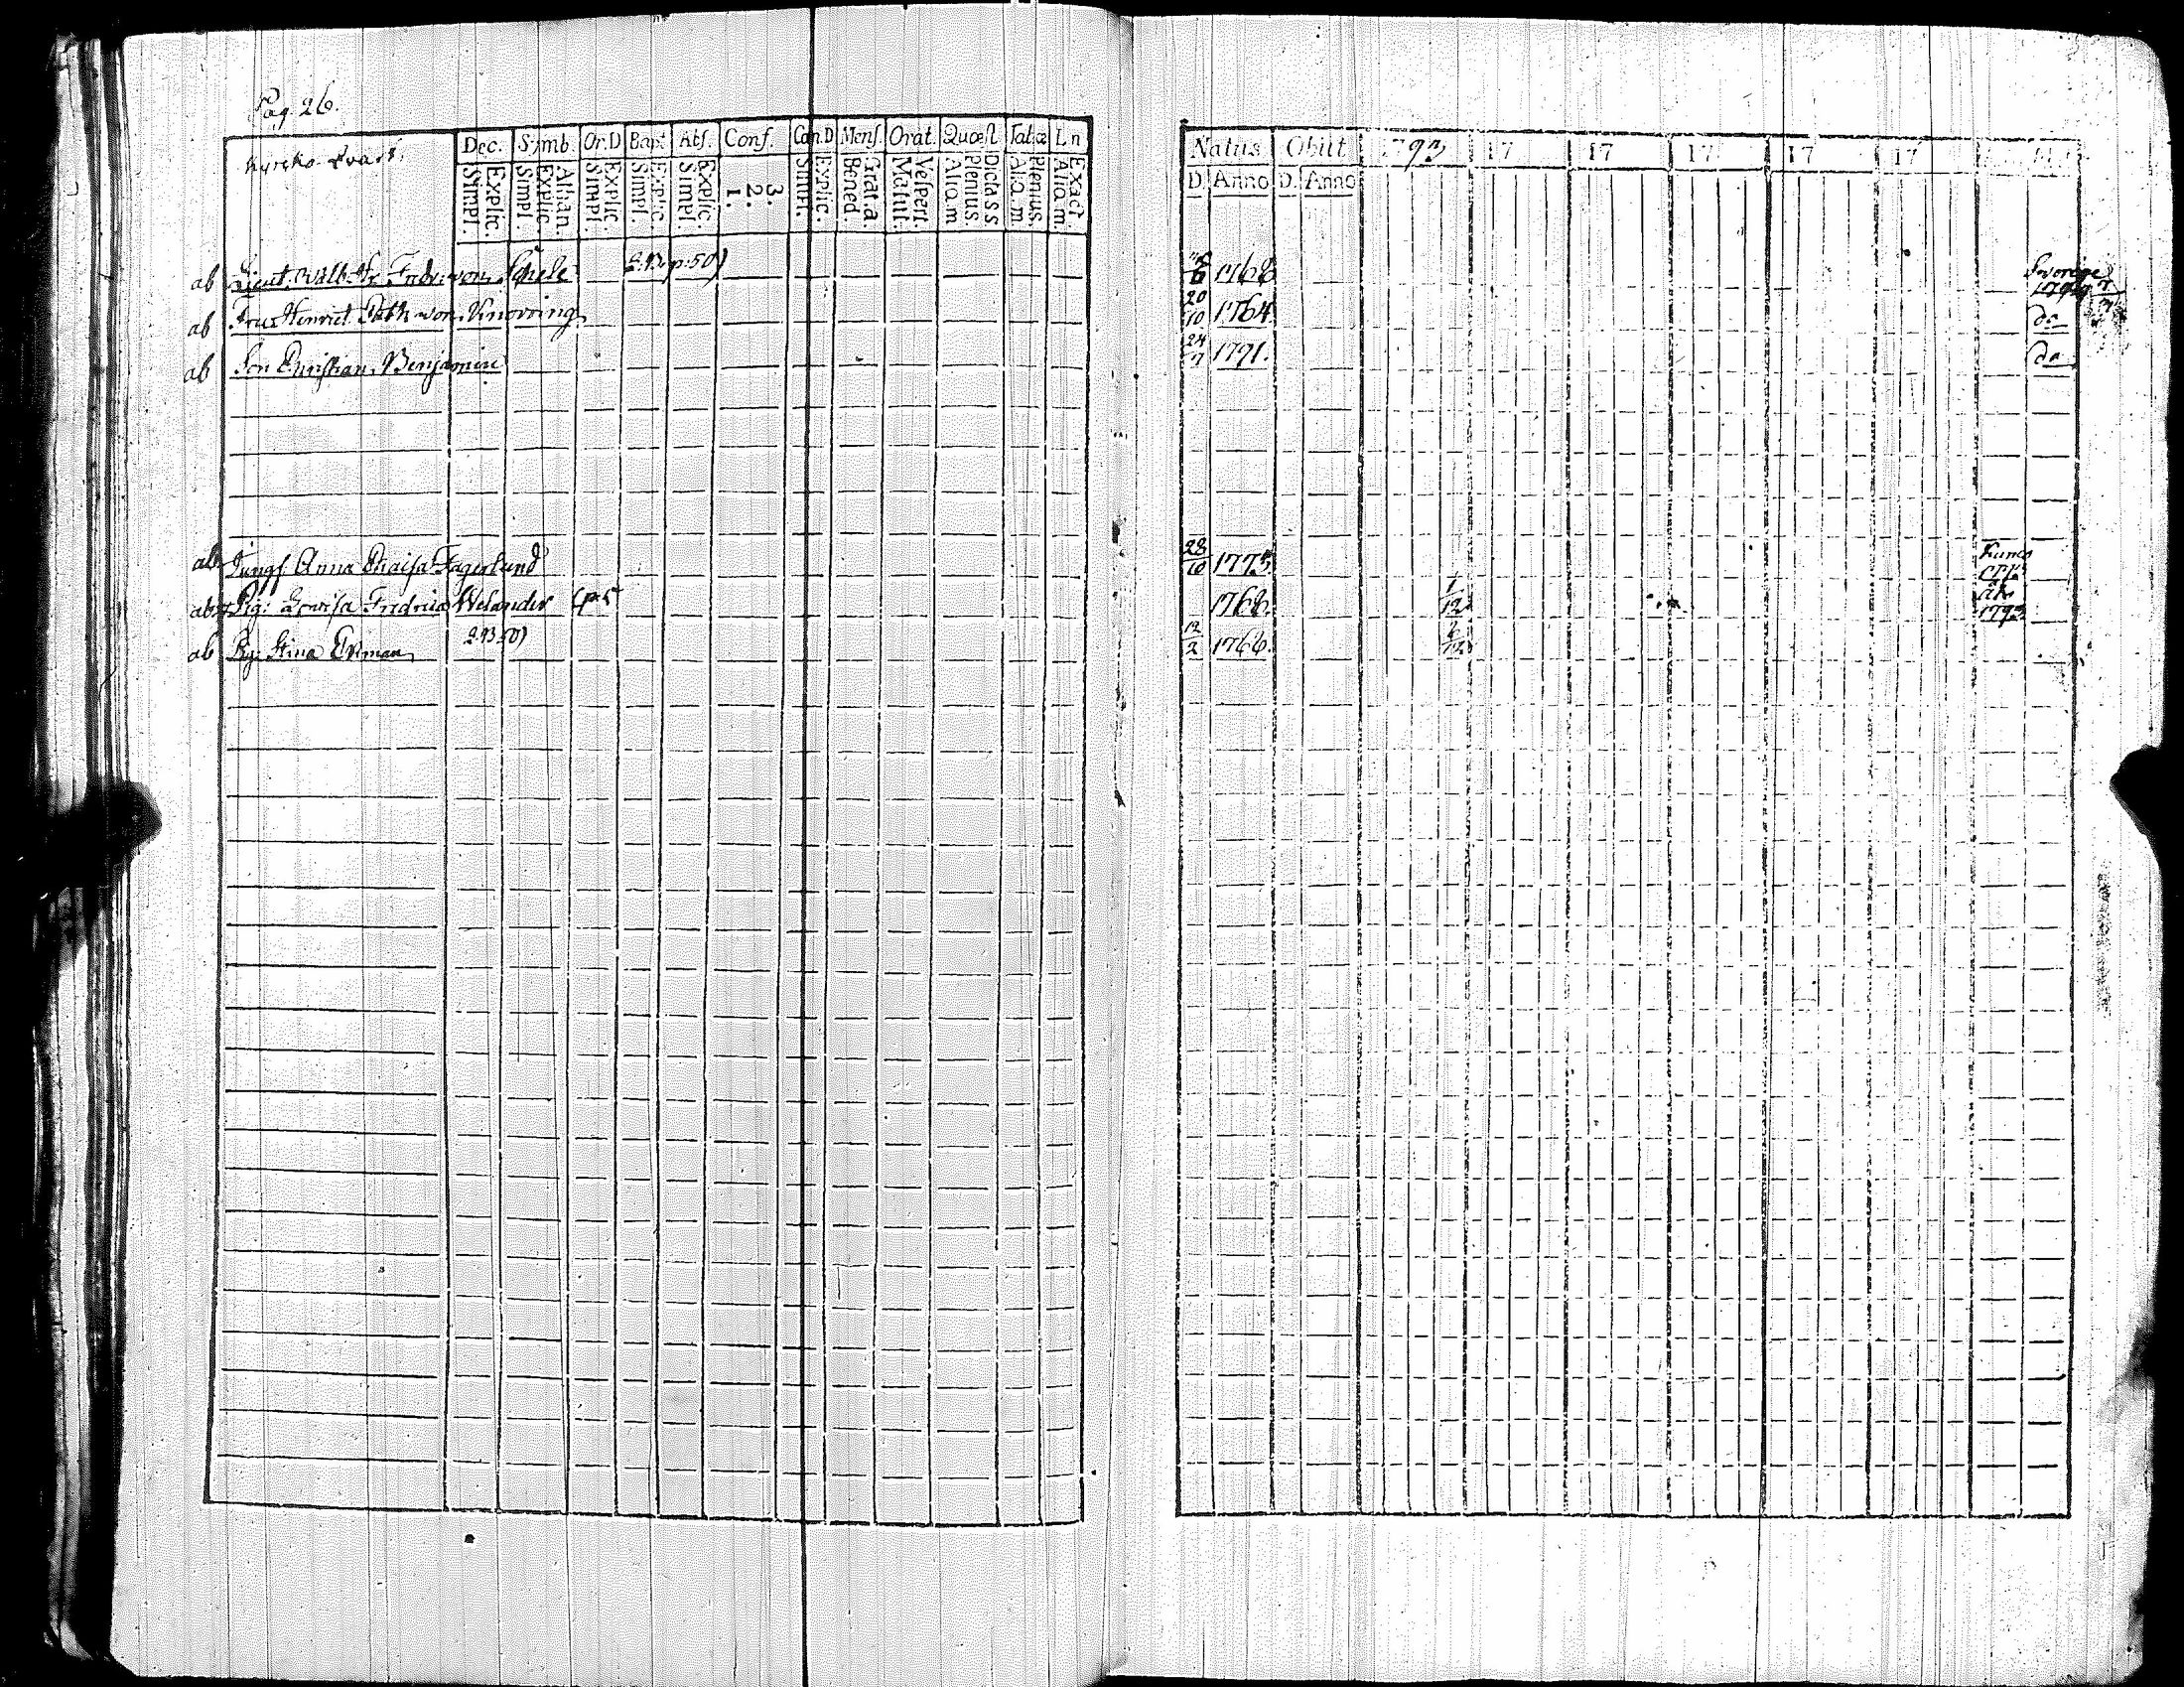 Pag. 26.
Kyrcko-Qvart.
Dec. Symb. Or.D Bapt Abs. Conf. Can.D Mens. Orat. Quæst Tab.æ Ln
Explic. Simpl. Athan. Explic. Simpl. Explic. Simpl. Explic. Simpl. Explic. Simpl. 3. 2. 1. Explic. Simpl. Grat.a. Bened. Vespert. Matut. Dictass Plenius. Aliq.m Plenius. Aliq.m Exact. Aliq.m
ab Lieut. Wälb. Hr Fredr. von Schéele
ab Fru Henriet. von Knorring
ab Son Christian Benjamin
ab Jungf. Anna Chaisa Fagerlund
ab Pig: Lovisa Fredrica Welander
ab Pig: Stina Ekman
Natus. Obiit 1793 17 17 17 17 17
D. Anno D. Anno
6 1768
20/10 1764
do
24/7 1791.
do
28/10 1775
1768 1/12
1793
12/2 1766. 2/12